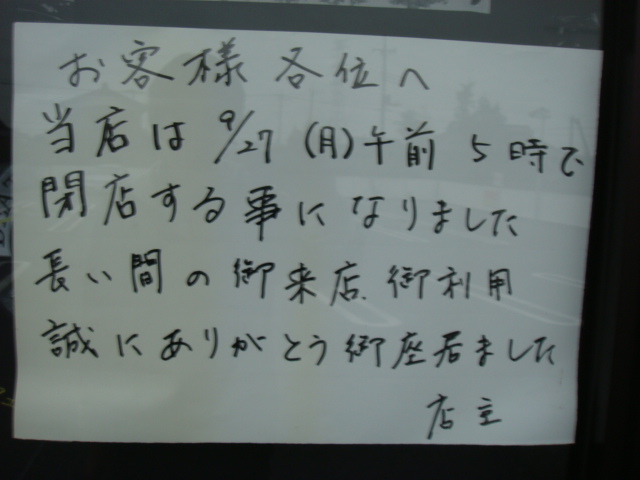 お客様各位へ
当店は9/27(月)午前5時で
閉店する事になりました
長い間の御来店、御利用
誠にありがとう御座居ました
店主